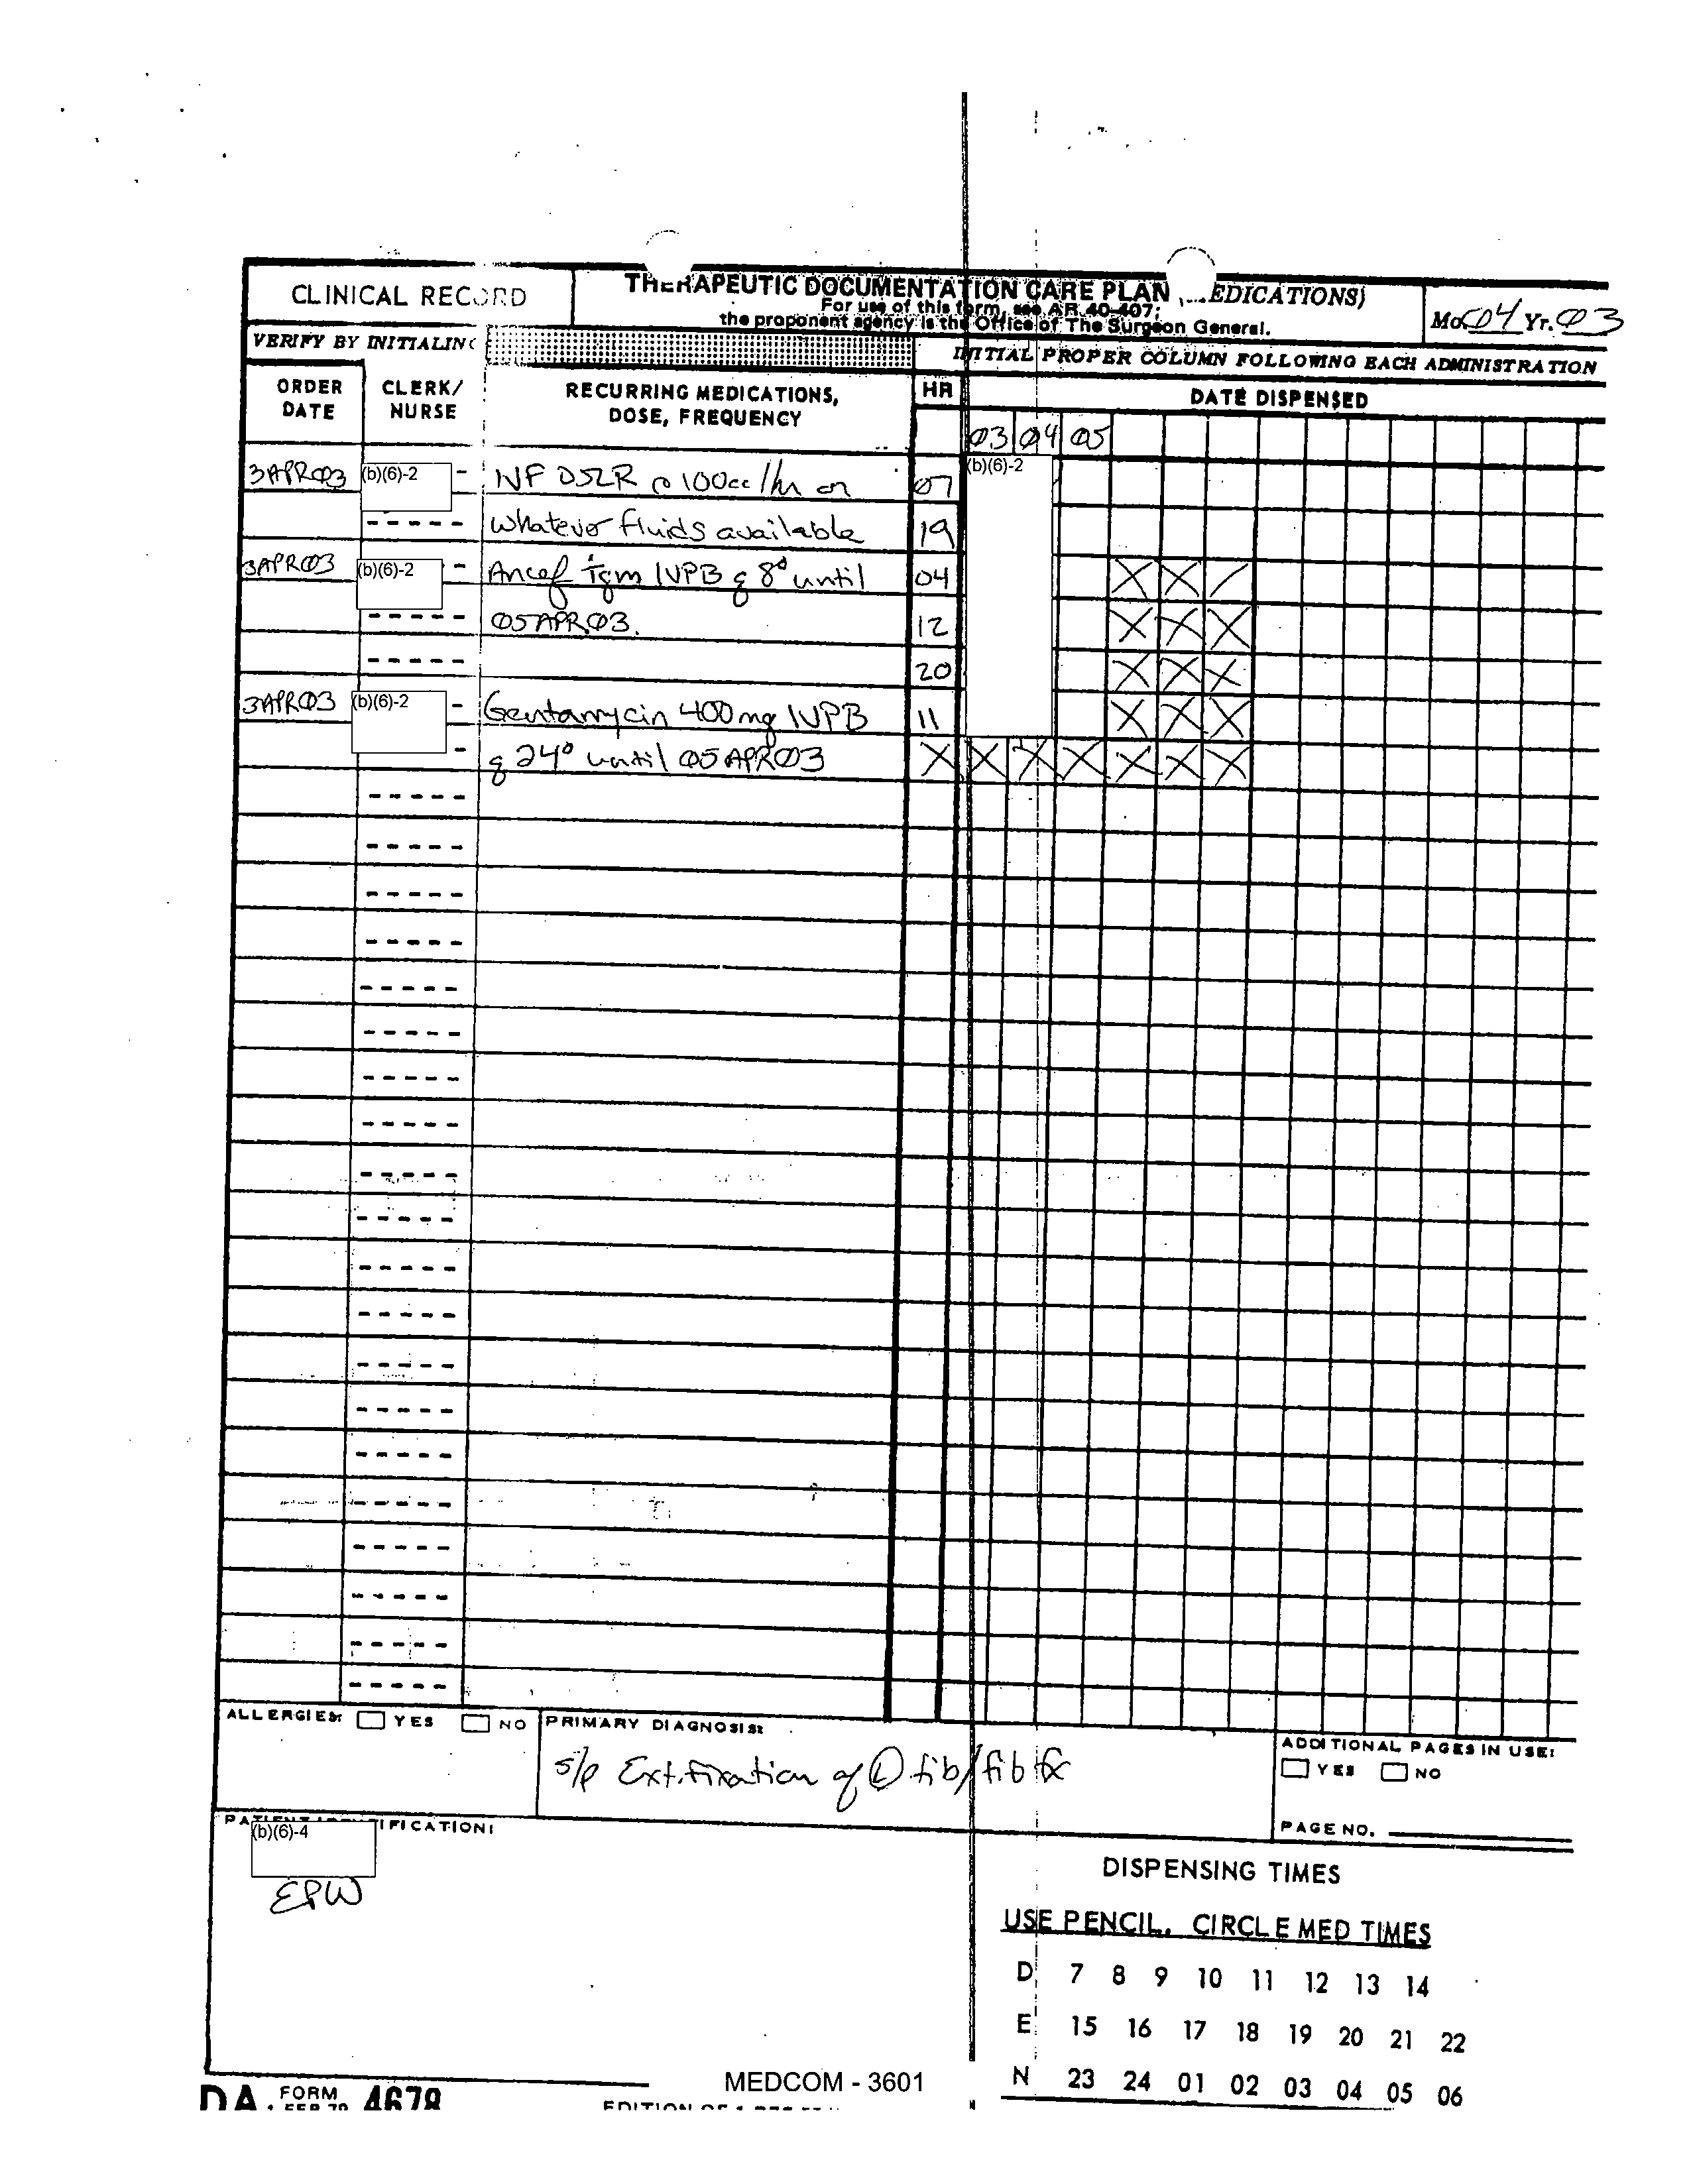 CLINICAL RECORD
THERAPEUTIC DOCUMENTATION CARE PLAN (...EDICATIONS)
For use of this form, see AR 40-407;
the proponent agency is the Office of The Surgeon General.
Mo. 04 Yr. 03
VERIFY BY INITIALING
INITIAL PROPER COLUMN FOLLOWING EACH ADMINISTRATION
ORDER DATE
CLERK/ NURSE
RECURRING MEDICATIONS, DOSE, FREQUENCY
HR
DATE DISPENSED
03 04 05
3APR03 (b)(6)-2 - IVF D5LR @ 100cc/hr or 07 (b)(6)-2
----- whatever fluids available 19
3APR03 (b)(6)-2 - Ancef 1gm IVPB q 8° until 04 X X /
----- 05APR03. 12 X X X
----- 20 X X X
3APR03 (b)(6)-2 - Gentamycin 400mg IVPB 11 X X X
- q 24° until 05APR03 X X X X X X X
ALLERGIES: YES NO
PRIMARY DIAGNOSIS:
s/p Ext. fixation of Ⓛ tib/fib fx
ADDITIONAL PAGES IN USE:
YES NO
PAGE NO.
PATIENT IDENTIFICATION:
(b)(6)-4
EPW
DISPENSING TIMES
USE PENCIL. CIRCLE MED TIMES
D 7 8 9 10 11 12 13 14
E 15 16 17 18 19 20 21 22
N 23 24 01 02 03 04 05 06
MEDCOM - 3601
DA FORM 4678
1 FEB 79
EDITION OF 1